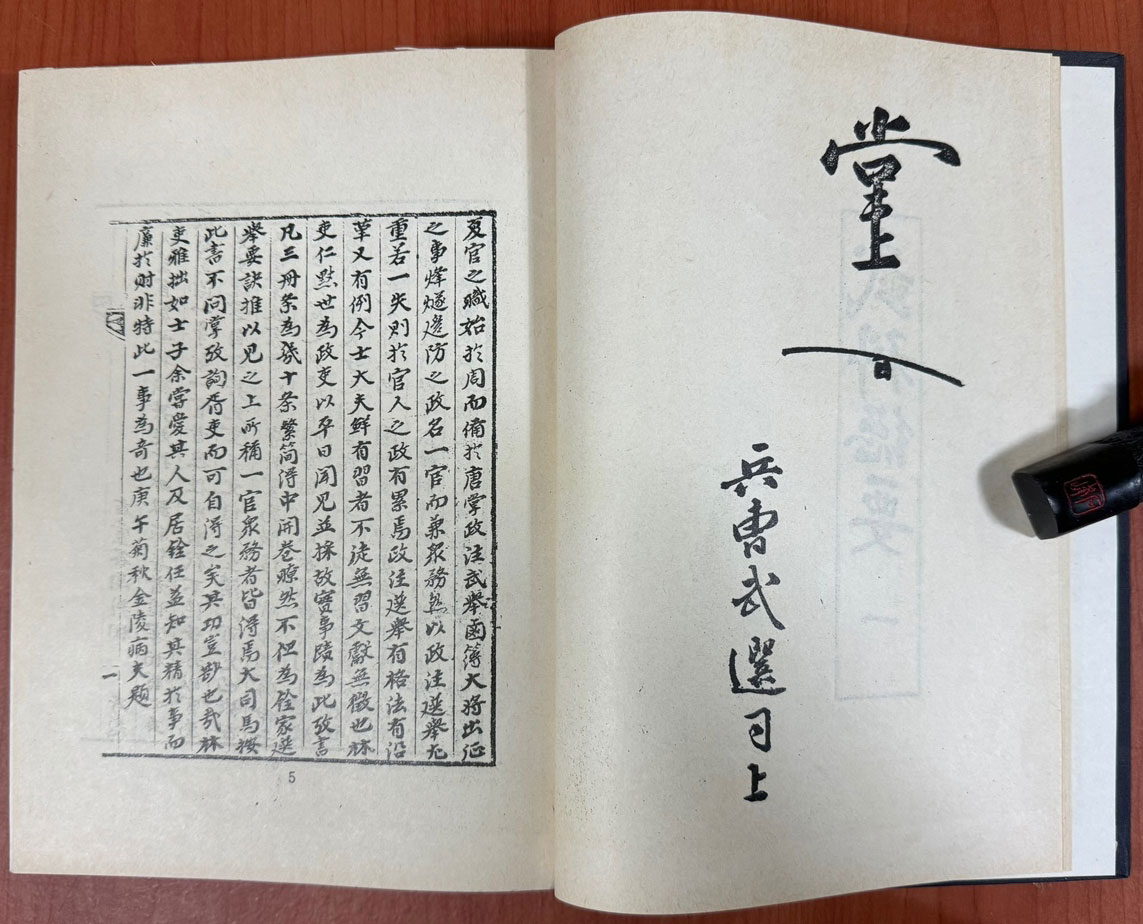 堂上
日
兵曹武選司上
夏官之職始於周而備於唐掌政注武舉鹵簿大將出征
之事烽燧邊防之政名一官而兼衆務然以政注選舉尤
重若一失則於官人之政有累焉政注選舉有格法有沿
革又有例今士大夫鮮有習者不徒無習文獻無徵也林
吏仁默世為政吏以平日聞見並採故實事蹟為此攷書
凡三冊条為幾十条繁簡得中開卷瞭然不但為銓家選
舉要訣推以見之上所稱一官衆務者皆得焉大司馬按
此書不問掌攷詢胥吏而可自得之矣其功豈尠也哉林
吏雅拙如士子余嘗愛其人及居銓任益知其精於事而
廉於財非特此一事為奇也庚午菊秋金陵病夫題
一
5